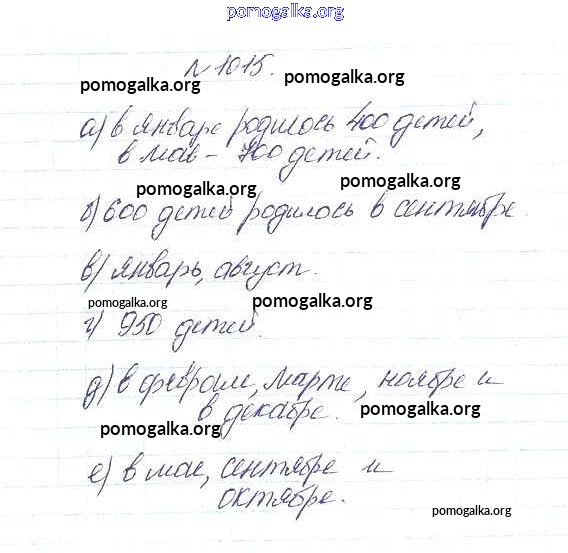 pomogalka.org
№ 1015.
pomogalka.org
pomogalka.org
а) в январе родилось 400 детей,
в мае - 700 детей.
pomogalka.org
pomogalka.org
б) 600 детей родилось в сентябре.
в) январь, август.
pomogalka.org
pomogalka.org
г) 950 детей.
д) в феврале, марте, ноябре и
в декабре.
pomogalka.org
pomogalka.org
е) в мае, сентябре и
октябре.
pomogalka.org